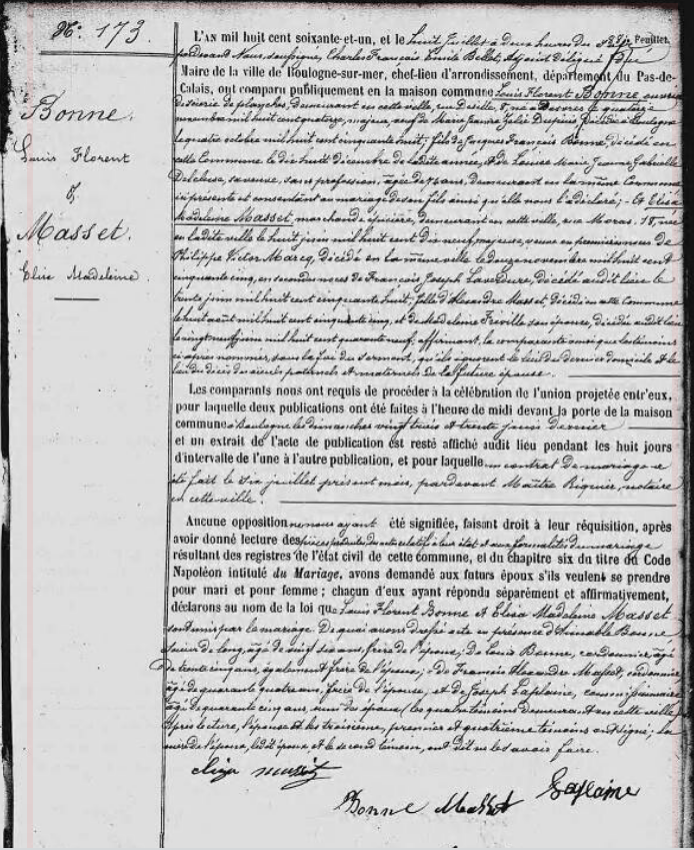 N°. 173.
Bonne
Louis Florent
&
Masset.
Elise Madeleine.
L'AN mil huit cent soixante-et-un, et le huit Juillet à deux heures du Feuillet.
pardevant Nous, soussigné, Charles François Emile Bellet, Adjoint délégué
Maire de la ville de Boulogne-sur-mer, chef-lieu d'arrondissement, département du Pas-de-
Calais, ont comparu publiquement en la maison commune Louis Florent Bonne, ouvrier
de scierie de planches, demeurant en cette ville, rue 8, né à Desvres le quatorze
mil huit cent quatorze, majeur, veuf de Marie Jeanne Julie décédée à Boulogne
le quatre octobre mil huit cent cinquante huit; fils de Jacques François Bonne, décédé en
cette Commune le dix huit décembre de ladite année, & de Louise Marie Jeanne Gabrielle
sa veuve, sans profession, âgée de ans, demeurant en la même Commune
ici présente et consentant au mariage de son fils ainsi qu'elle nous l'a déclaré; - Et Elisa
Madeleine Masset, marchande épicière, demeurant en cette ville, rue 18, née
en ladite ville le huit juin mil huit cent dix neuf, majeure, veuve en premières noces de
Philippe Victor Marcq, décédé en la même ville le douze novembre mil huit cent
cinquante cinq, en secondes noces de François Joseph Laverdure, décédé audit lieu le
trente juin mil huit cent cinquante huit; fille d'Alexandre Masset, décédé en cette Commune
le huit août mil huit cent cinquante cinq, et de Madeleine Fréville son épouse, décédée audit lieu
le vingt neuf juin mil huit cent quarante neuf, affirmant, la comparante ainsi que les témoins
ci après nommés, sous la foi du serment, qu'ils ignorent le lieu du dernier domicile & le
lieu du décès des aïeuls paternels et maternels de la future épouse.
Les comparants nous ont requis de procéder à la célébration de l'union projetée entr'eux,
pour laquelle deux publications ont été faites à l'heure de midi devant la porte de la maison
commune à Boulogne les dimanches vingt trois et trente juin dernier
et un extrait de l'acte de publication est resté affiché audit lieu pendant les huit jours
d'intervalle de l'une à l'autre publication, et pour laquelle un contrat de mariage a
été fait le six juillet présent mois, pardevant Maître Riquier, notaire
en cette ville.
Aucune opposition ne nous ayant été signifiée, faisant droit à leur réquisition, après
avoir donné lecture des pièces produites, des actes relatifs à leur état et aux formalités du mariage
résultant des registres de l'état civil de cette commune, et du chapitre six du titre du Code
Napoléon intitulé du Mariage, avons demandé aux futurs époux s'ils veulent se prendre
pour mari et pour femme; chacun d'eux ayant répondu séparément et affirmativement,
déclarons au nom de la loi que Louis Florent Bonne & Elisa Madeleine Masset
sont unis par le mariage. De quoi avons dressé acte en présence d'Aimable Bonne
scieur de long, âgé de vingt six ans, frère de l'époux; De Louis Bonne, cordonnier, âgé
de trente cinq ans, également frère de l'époux; - de François Alexandre Masset, cordonnier
âgé de quarante quatre ans, frère de l'épouse, et de Joseph Laplaine, commissionnaire
âgé de quarante cinq ans, ami des époux (les quatre témoins demeurant en cette ville)
Après lecture, l'épouse & les troisième, premier & quatrième témoins ont signé; la
mère de l'époux, ledit époux & le second témoin, ont dit ne le savoir faire.
Bonne Masset Laplaine